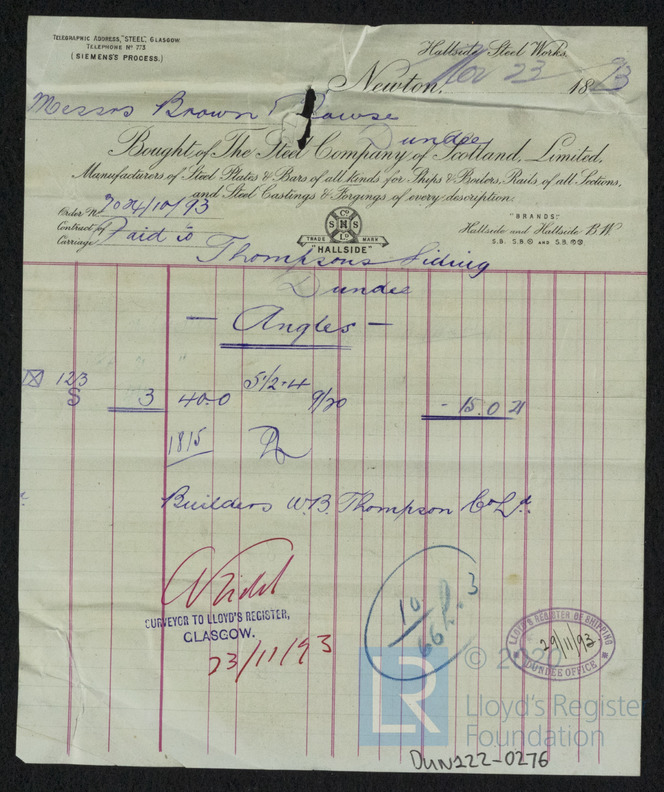 TELEGRAPHIC ADDRESS, "STEEL", GLASGOW
TELEPHONE Nº 773
(SIEMENS'S PROCESS.)
Hallside Steel Works.
Newton, Nov 23 1893
Messrs Brown Rowse
Dundee
Bought of The Steel Company of Scotland, Limited,
Manufacturers of Steel Plates & Bars of all kinds for Ships & Boilers, Rails of all Sections,
and Steel Castings & Forgings of every description.
Order Nº 7024/10/93
Contract for
Carriage Paid to
Cº
S N S
Lº
TRADE MARK
"HALLSIDE"
"BRANDS"
Hallside and Hallside B.W
S.B. S.B. AND S.B.
Thompsons Siding
Dundee
— Angles —
123 5½.4
S 3 40.0 9/20 - 15.0 21
1815
Builders W.B. Thompson Co Ld.
SURVEYOR TO LLOYD'S REGISTER,
GLASGOW.
23/11/93
10
66 3
LLOYD'S REGISTER OF SHIPPING
29/11/93
DUNDEE OFFICE
LR
© 2020
Lloyd's Registe
Foundation
DUN222-0276